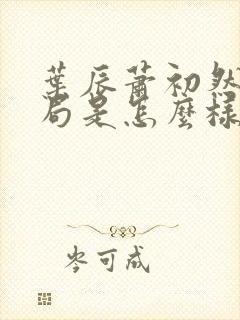 葉辰蕭初然
局是怎麼樣
岑可成